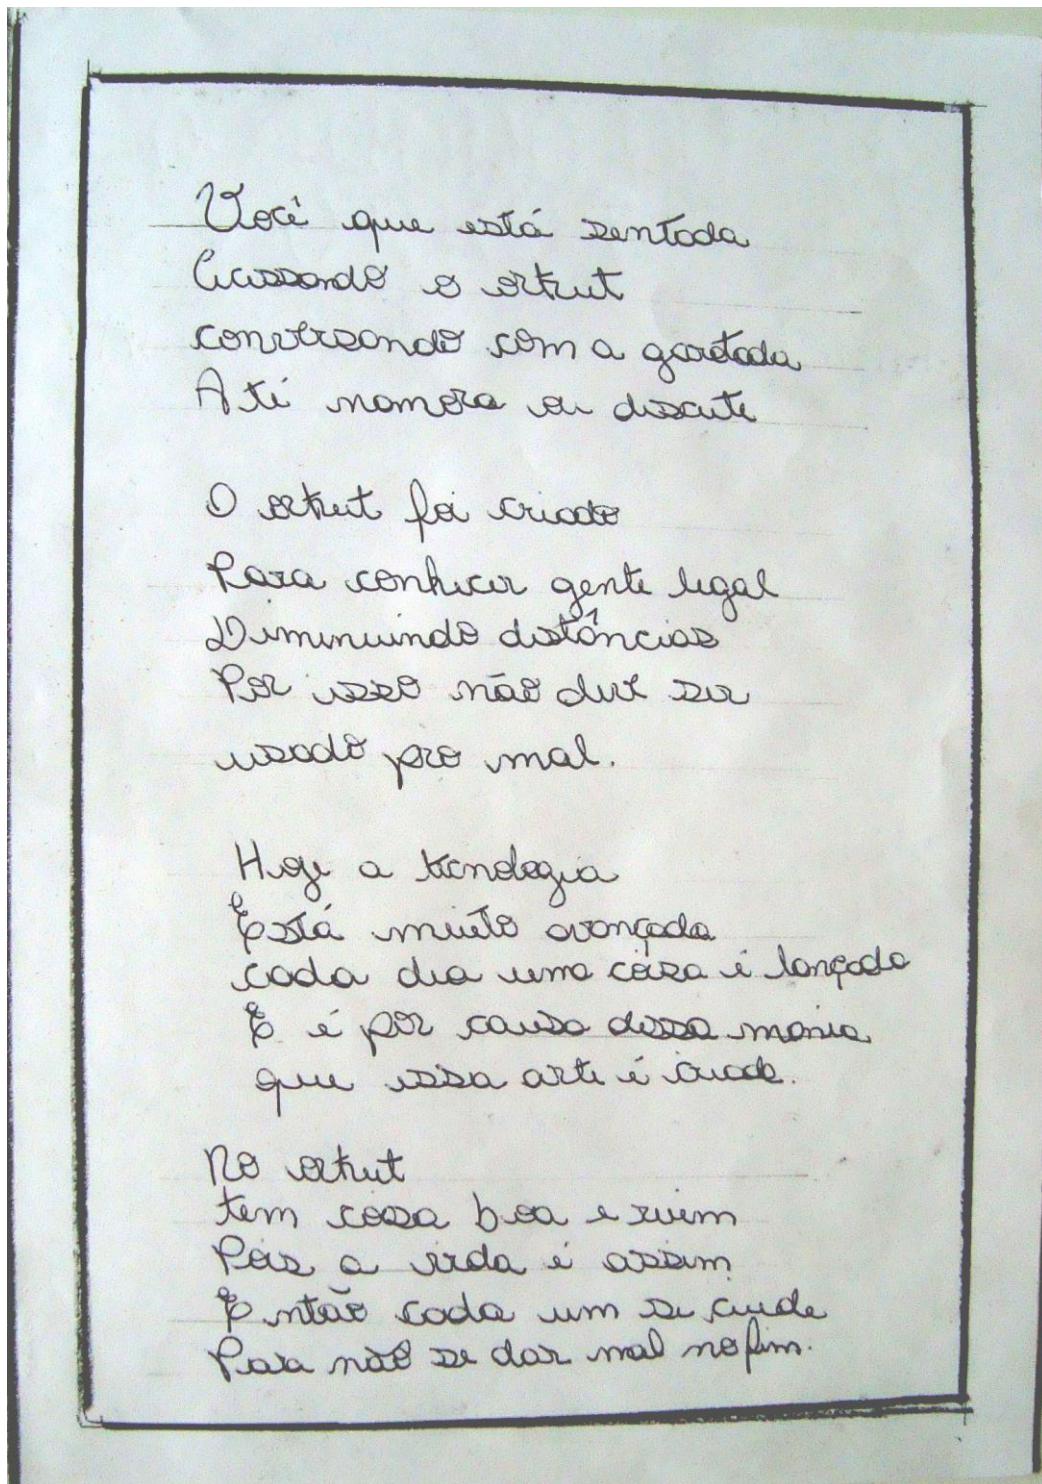 Você que está sentada
Acessando o orkut
conversando com a garotada
Até namora ou discute
O orkut foi criado
Para conhecer gente legal
Diminuindo distâncias
Por isso não deve ser
usado pro mal.
Hoje a tecnologia
Está muito avançada
cada dia uma coisa é lançada
E é por causa dessa mania
que essa arte é criada.
No orkut
tem coisa boa e ruim
Pois a vida é assim
Então cada um se cuide
Para não se dar mal no fim.